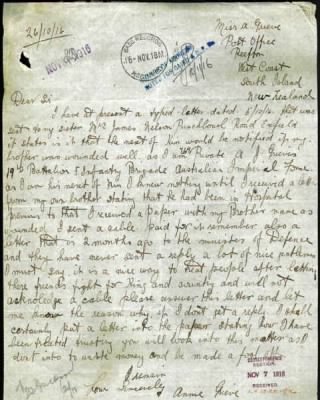 26/10/16
Miss A. Grieve
Post Office
Reefton
West Coast
South Island
New Zealand
NOV 1916
BASE RECORDS
8-NOV.18M
Dear Sir
I have at present a typed letter dated 5/10/16 that was
sent to my sister Mrs James Nelson Punchbowl Road Enfield
it states in it that the next of kin would be notified if my
brother was wounded well, as I am Private A J Grieves
19th Battalion 5 Infantry Brigade Australian Imperial Force
as I am his next of kin I knew nothing until I received a
from my own brother stating that he had been in Hospital
previous to that I received a Paper with my Brother name as
wounded. I sent a cable paid for it remember also a
letter that is 2 months ago to the minister of Defence
and they have never sent a reply a lot of nice problems
I must say it is a nice way to treat people after letting
there friends fight for King and country and will not
acknowledge a cable please answer this letter and let
me know the reason why if I don't get a reply I shall
certainly put a letter into the paper stating how I have
been treated trusting you will look into this matter as I
dont into to waste money and be made a
I remain
Yours Sincerely
Annie Grieve
SECTION
NOV 7 1916
RECEIVED